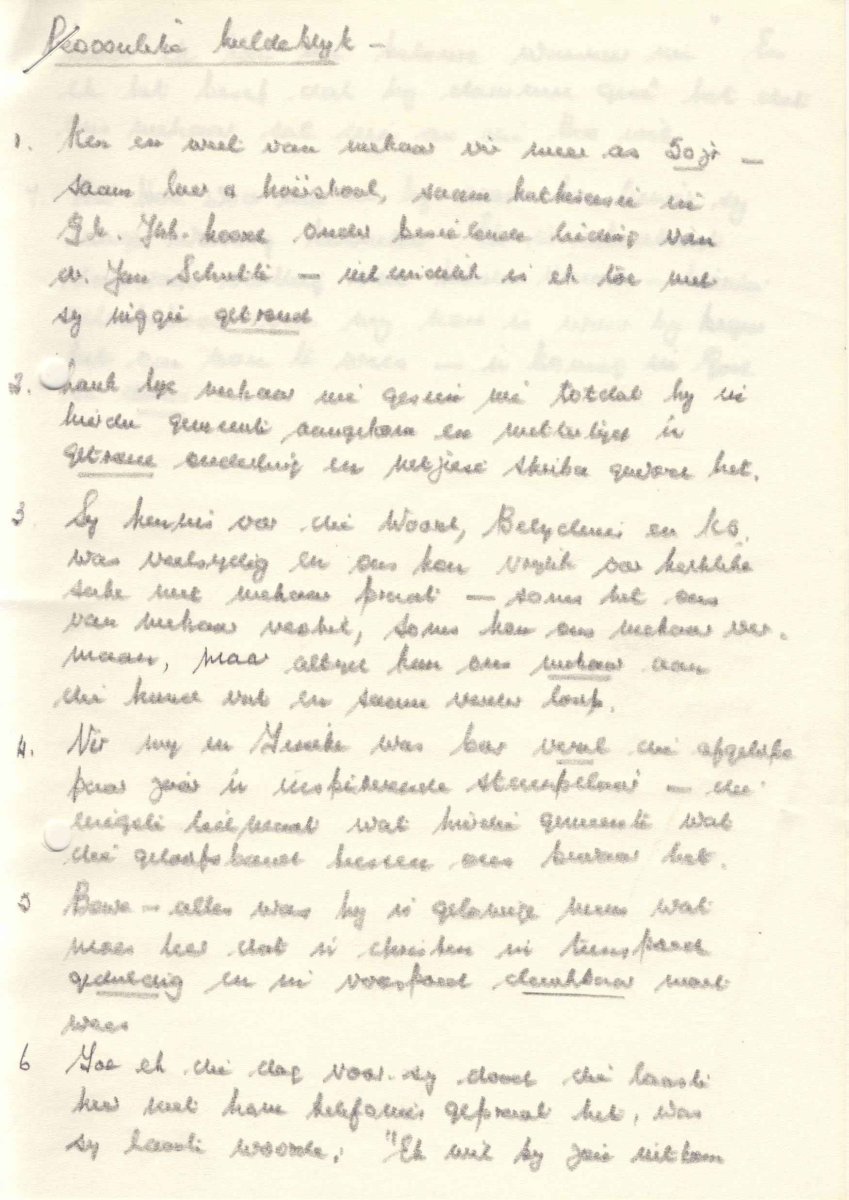 Persoonlike huldeblyk -
1. Ken en weet van mekaar vir meer as 50 jr -
saam leer a hoërskool, saam katkisasie in
Gk. Jhb. Noord onder besielende leiding van
dr. Jan Schutte - uiteindelik is ek toe met
sy niggie getroud
2. Lank tyd mekaar nie gesien nie totdat hy in
hierdie gemeente aangekom en mettertyd 'n
getroue ouderling en netjiese skriba geword het.
3 Sy kennis van die Woord, Belydenis en KO.
was veelsydig en ons kon vrylik oor kerklike
sake met mekaar praat - soms het ons
van mekaar verskil, soms kon ons mekaar ver-
maan, maar altyd kon ons mekaar aan
die hand vat en saam verder loop.
4. Vir my en was Cor veral die afgelope
paar jaar 'n inspirerende steunpilaar - die
enigste leidmaat wat hierdie gemeente wat
die geloofsband tussen ons bewaar het.
5 Bowe - alles was hy 'n gelowige mens wat
moes leer dat 'n christen in teenspoed
geduldig en in voorspoed dankbaar moet
wees
6 Toe ek die dag voor sy dood die laaste
keer met hom telefonies gepraat het, was
sy laaste woorde, "Ek wil by jou uitkom